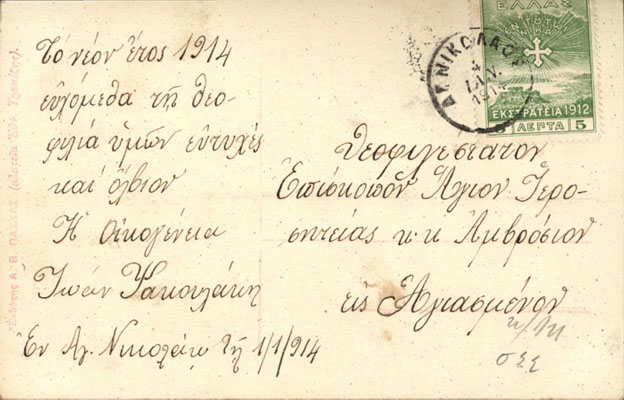 Τὸ νέον ἔτος 1914
εὐχόμεθα τῇ θεο-
φιλίᾳ ὑμῶν εὐτυχὲς
καὶ ὄλβιον
Ἡ Οἰκογένεια
Ἰωάν Ψακουλάκη
Ἐν Ἁγ. Νικολάῳ τῇ 1/1/914
ΕΛΛΑΣ
ΕΝ ΤΟΥΤΩ ΝΙΚΑ
ΕΚΣΤΡΑΤΕΙΑ 1912
ΛΕΠΤΑ 5
ΑΓ. ΝΙΚΟΛΑΟΣ
4
ΙΑΝ
1914
Θεοφιλέστατον
Ἐπίσκοπὸν Ἅγιον Ἱερο-
σητείας κ.κ Ἀμβρόσιον
εἰς Ἁγιασμένον
Α. Β. ΠΑΣΠΑΣ